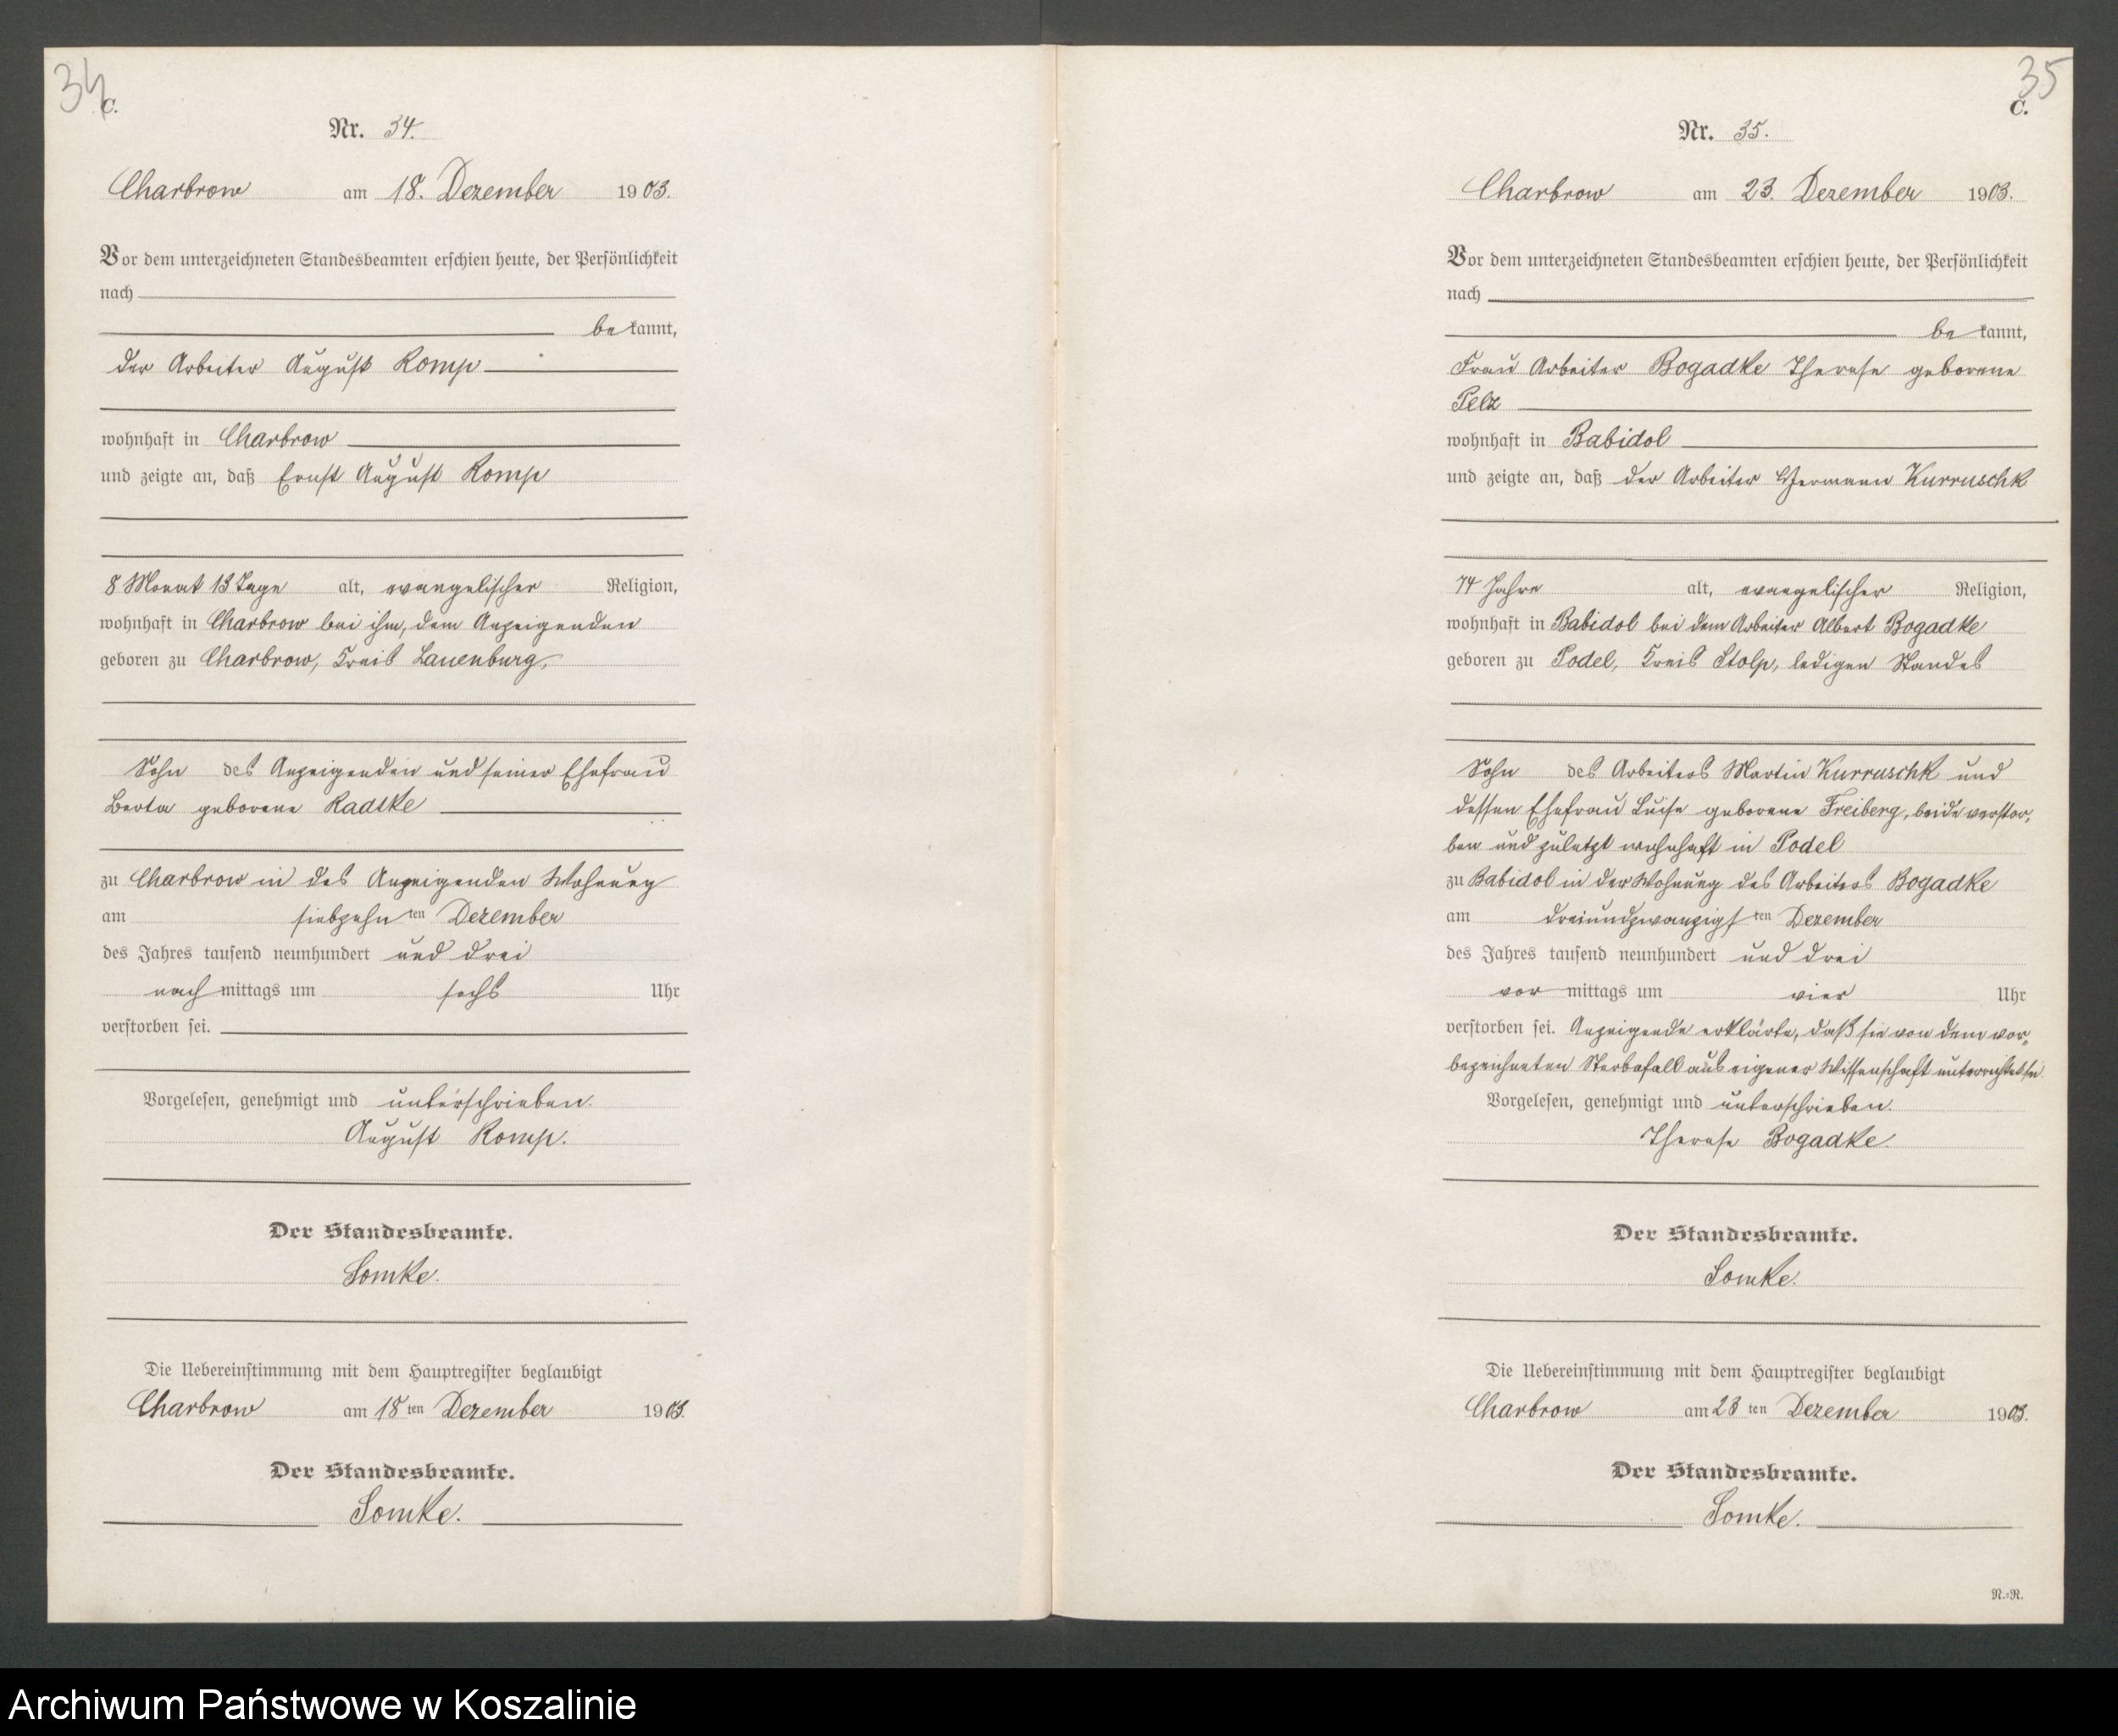 34
C.
Nr. 34.
Charbrow am 18. Dezember 1903.
Vor dem unterzeichneten Standesbeamten erschien heute, der Persönlichkeit
nach
be kannt,
der Arbeiter August Romp
wohnhaft in Charbrow
und zeigte an, daß Ernst August Romp
8 Monat 13 Tage alt, evangelischer Religion,
wohnhaft in Charbrow bei ihm, dem Anzeigenden
geboren zu Charbrow, Kreis Lauenburg,
Sohn des Anzeigenden und seiner Ehefrau
Berta geborene Radtke
zu Charbrow in des Anzeigenden Wohnung
am siebzehn ten Dezember
des Jahres tausend neunhundert und drei
nach mittags um sechs Uhr
verstorben sei.
Vorgelesen, genehmigt und unterschrieben.
August Romp.
Der Standesbeamte.
Somke.
Die Uebereinstimmung mit dem Hauptregister beglaubigt
Charbrow am 18 ten Dezember 1903.
Der Standesbeamte.
Somke.
35
C.
Nr. 35.
Charbrow am 23. Dezember 1903.
Vor dem unterzeichneten Standesbeamten erschien heute, der Persönlichkeit
nach
be kannt,
Frau Arbeiter Bogadke Therese geborene
Pelz
wohnhaft in Babidol
und zeigte an, daß der Arbeiter Hermann Kurruschk
74 Jahre alt, evangelischer Religion,
wohnhaft in Babidol bei dem Arbeiter Albert Bogadke
geboren zu Podel, Kreis Stolp, ledigen Standes
Sohn des Arbeiters Martin Kurruschk und
dessen Ehefrau Luise geborene Freiberg, beide verstor,
ben und zuletzt wohnhaft in Podel
zu Babidol in der Wohnung des Arbeiters Bogadke
am dreiundzwanzigs ten Dezember
des Jahres tausend neunhundert und drei
vor mittags um vier Uhr
verstorben sei. Anzeigende erklärte, daß sie von dem vor,
bezeichneten Sterbefall aus eigener Wissenschaft unterrichtet sei.
Vorgelesen, genehmigt und unterschrieben.
Therese Bogadke.
Der Standesbeamte.
Somke.
Die Uebereinstimmung mit dem Hauptregister beglaubigt
Charbrow am 23 ten Dezember 1903.
Der Standesbeamte.
Somke.
N.=R.
Archiwum Państwowe w Koszalinie